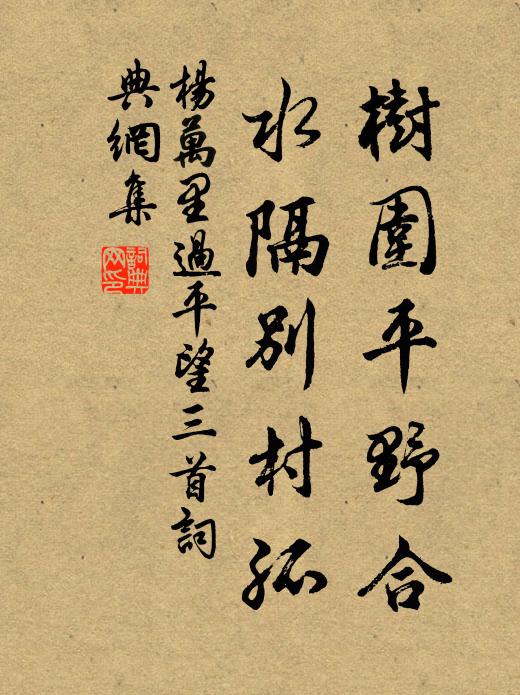 樹圍平野合
水隔別村孤
楊萬里過平望三首詞
典網集
詞典網印